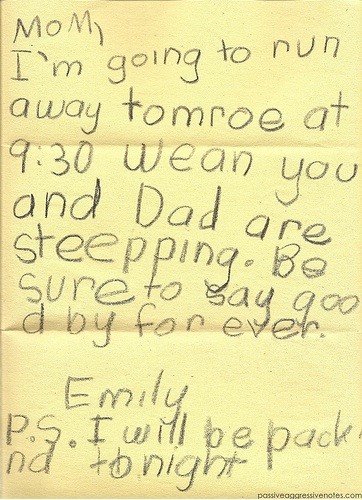 MOM,
I'm going to run
away tomroe at
9:30 wean you
and Dad are
steepping. Be
sure to say goo
d by for ever.
Emily
P.S. I will be pack
nd tonight
passiveaggressivenotes.com